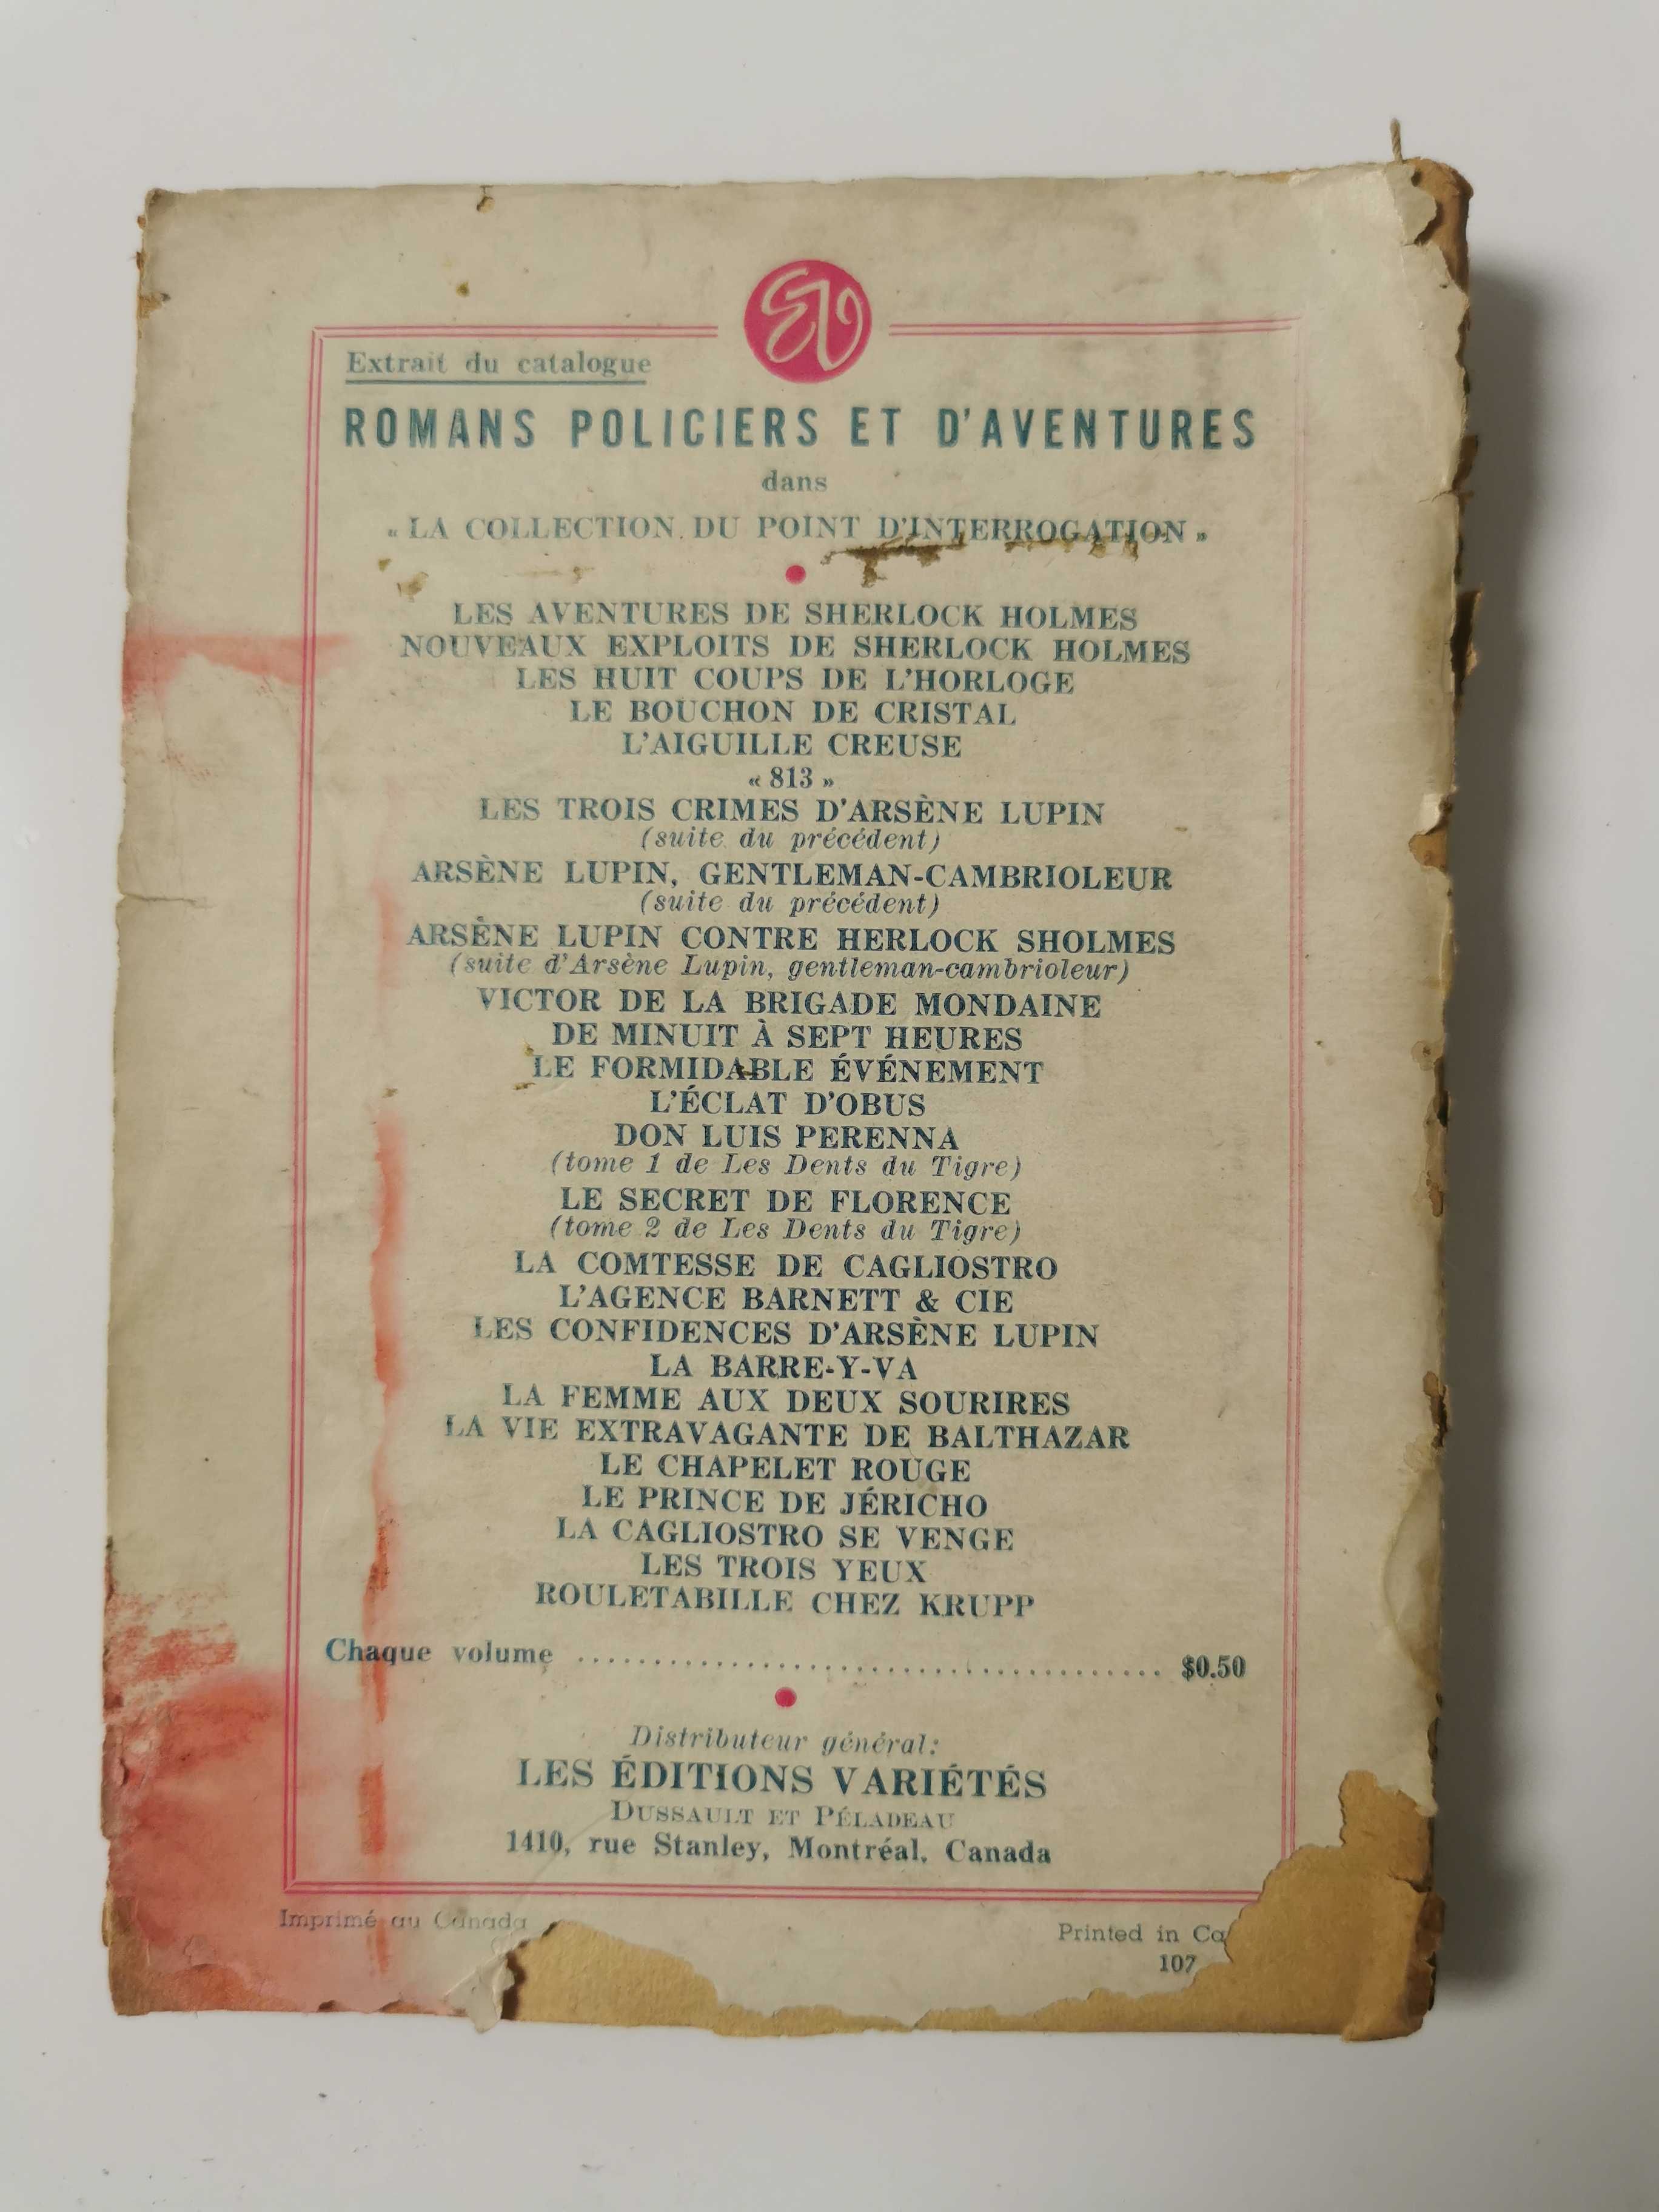 EV
Extrait du catalogue
ROMANS POLICIERS ET D'AVENTURES
dans
« LA COLLECTION DU POINT D'INTERROGATION »
LES AVENTURES DE SHERLOCK HOLMES
NOUVEAUX EXPLOITS DE SHERLOCK HOLMES
LES HUIT COUPS DE L'HORLOGE
LE BOUCHON DE CRISTAL
L'AIGUILLE CREUSE
« 813 »
LES TROIS CRIMES D'ARSÈNE LUPIN
(suite du précédent)
ARSÈNE LUPIN, GENTLEMAN-CAMBRIOLEUR
(suite du précédent)
ARSÈNE LUPIN CONTRE HERLOCK SHOLMES
(suite d'Arsène Lupin, gentleman-cambrioleur)
VICTOR DE LA BRIGADE MONDAINE
DE MINUIT À SEPT HEURES
LE FORMIDABLE ÉVÉNEMENT
L'ÉCLAT D'OBUS
DON LUIS PERENNA
(tome 1 de Les Dents du Tigre)
LE SECRET DE FLORENCE
(tome 2 de Les Dents du Tigre)
LA COMTESSE DE CAGLIOSTRO
L'AGENCE BARNETT & CIE
LES CONFIDENCES D'ARSÈNE LUPIN
LA BARRE-Y-VA
LA FEMME AUX DEUX SOURIRES
LA VIE EXTRAVAGANTE DE BALTHAZAR
LE CHAPELET ROUGE
LE PRINCE DE JÉRICHO
LA CAGLIOSTRO SE VENGE
LES TROIS YEUX
ROULETABILLE CHEZ KRUPP
Chaque volume ........................................ $0.50
Distributeur général:
LES ÉDITIONS VARIÉTÉS
DUSSAULT ET PÉLADEAU
1410, rue Stanley, Montréal, Canada
Imprimé au Canada
Printed in Ca
107